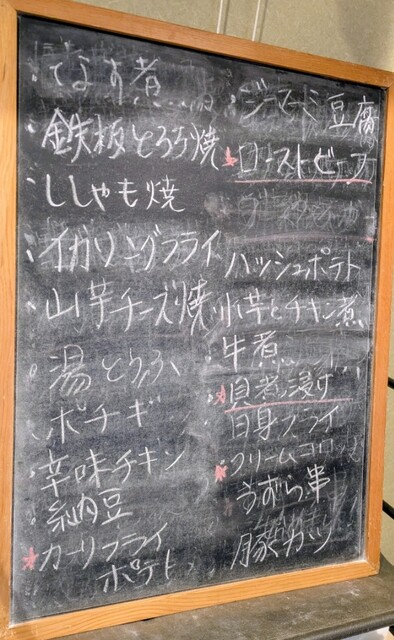 なす煮
鉄板とろろ焼
ししゃも焼
イカリングフライ
山芋チーズ焼
湯とうふ
ポテギ
辛味チキン
納豆
カーリフライ
ポテト
ジーマーミ豆腐
ローストビーフ
ハッシュポテト
小芋とチキン煮
牛煮
煮浸し
白身フライ
クリームコロッケ
うずら串
豚カツ